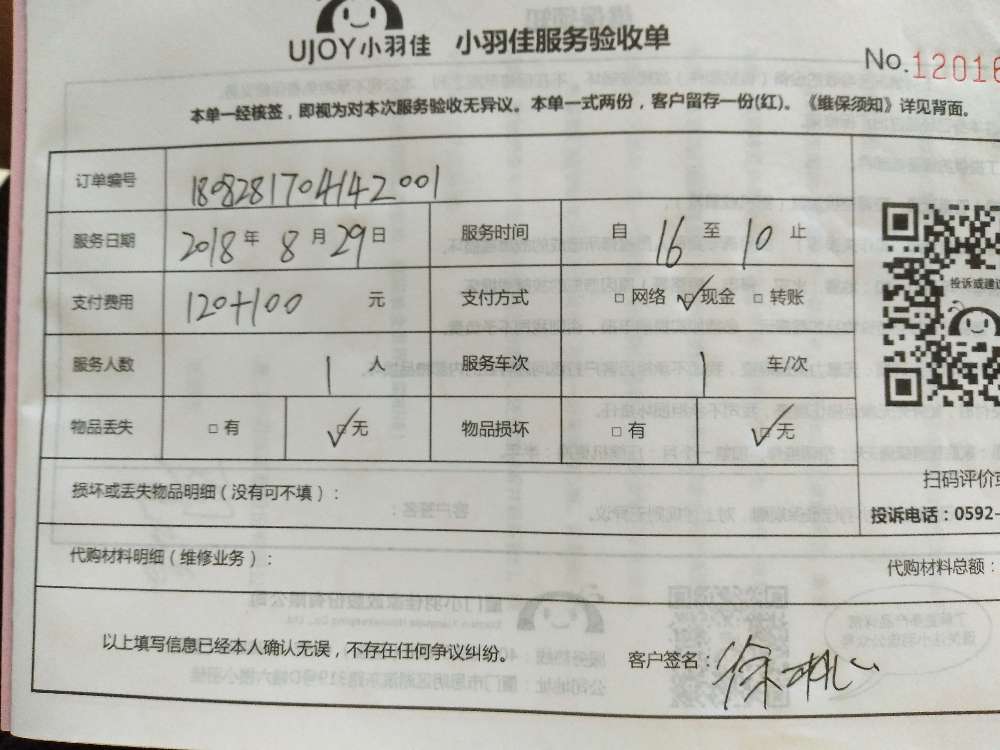 UJOY小羽佳 小羽佳服务验收单
No.12016
本单一经核签，即视为对本次服务验收无异议。本单一式两份，客户留存一份(红)。《维保须知》详见背面。
订单编号 1808281704142001
服务日期 2018年8月29日 服务时间 自16至10止
支付费用 120+100 元 支付方式 □网络 ☑现金 □转账
服务人数 1人 服务车次 1 车/次
物品丢失 □有 ☑无 物品损坏 □有 ☑无
投诉或建议
损坏或丢失物品明细（没有可不填）：
扫码评价或
投诉电话：0592-
代购材料明细（维修业务）：
代购材料总额：
以上填写信息已经本人确认无误，不存在任何争议纠纷。 客户签名：